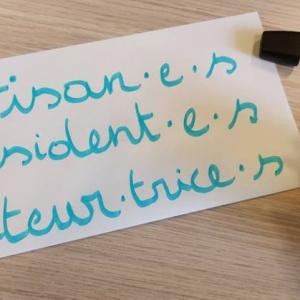 tisan·e·s
sident·e·s
teur·trice·s